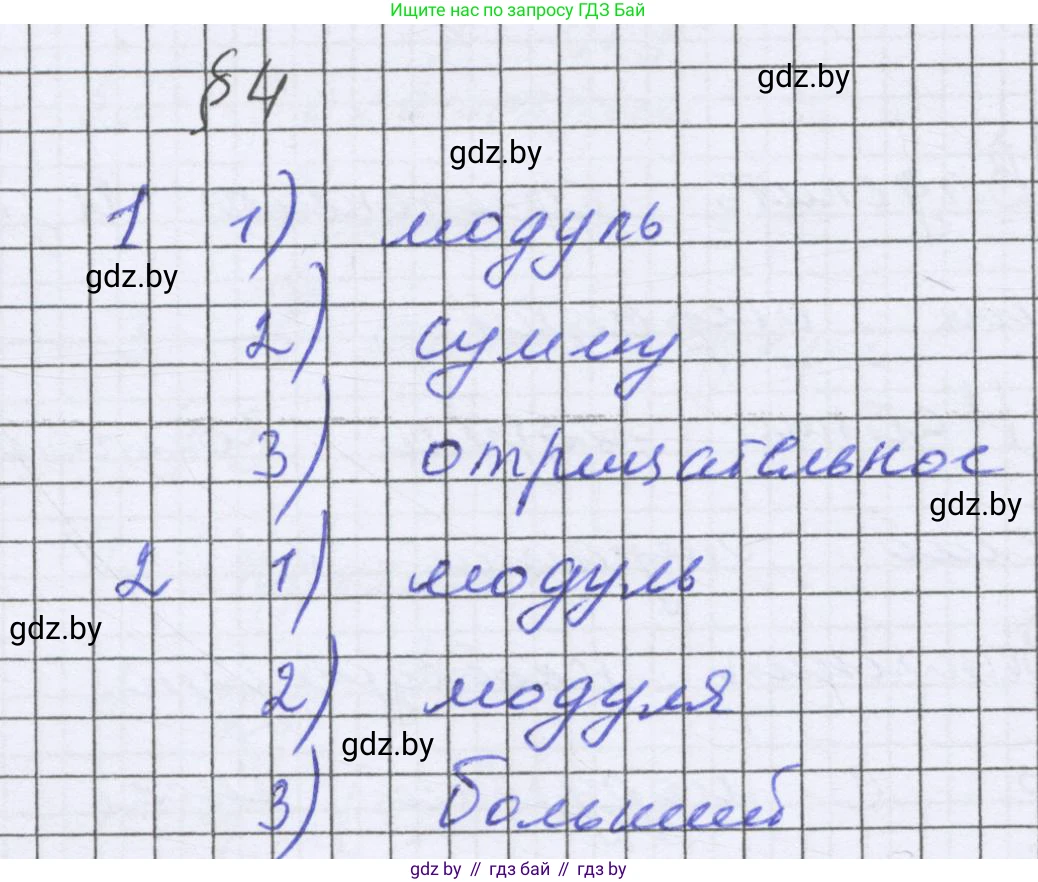 Ищите нас по запросу ГДЗ Бай
§ 4
gdz.by
gdz.by
1 1) модуль
gdz.by
2) сумму
3) отрицательное
gdz.by
2 1) модуль
gdz.by
2) модуля
gdz.by
3) больший
gdz.by // гдз бай // гдз by